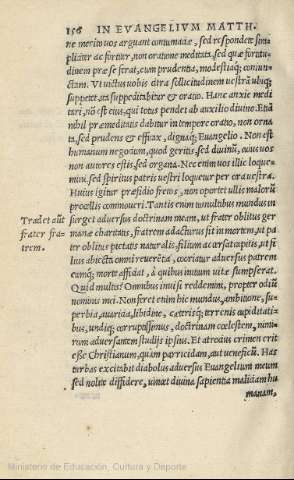 156 IN EVANGELIVM MATTH.
ne merito vos arguant contumaciæ, sed respondete sim-
pliciter ac fortiter, non oratione meditata, sed quæ fortitu-
dinem præ se ferat, cum prudentia, modestiaq́; coniun-
ctam. Vt victus vobis citra sollicitudinem vestrã vbiq́;
suppetet, ita suppeditabitur & oratio. Hanc enim medi-
tari, nõ est eius, qui totus pendet ab auxilio diuino. Etiã
nihil præmeditatis dabitur in tempore oratio, non orna
ta, sed prudens & efficax, dignaq́; Euangelio. Non est
humanum negotium, quod geritis, sed diuinũ, cuius vos
non autores estis, sed organa. Nec enim vos illic loque-
mini, sed spiritus patris vestri loquetur per os vestrũ.
Huius igitur præsidio fretos, non oportet vllis malorũ
procellis commoueri. Tantis enim tumultibus mundus in
surget aduersus doctrinam meam, vt frater oblitus ger
manæ charitatis, fratrem adacturus sit in mortem, vt pa
ter oblitus pietatis naturalis, filium accersat capitis, vt li
beri abiecta omni reuerẽtia, coortur aduersus patrem
eosq́; morte afficiat, à quibus initium vitæ sumpserat.
Quid multis? Omnibus inuisi reddemini, propter odiũ
nominis mei. Non feret enim hic mundus, ambitione, su-
perbia, auaritia, libidine, cæterisq́; terrenis cupiditati-
bus, vndiq́; corruptissimus, doctrinam cœlestem, nimi-
rum aduersantem studijs ipsius. Et atrocius crimen erit
esse Christianum, quàm parricidam, aut veneficũ. Has
turbas excitabit diabolus aduersus Euangelium meum
sed nolite diffidere, vincet diuina sapientia malitiam hu
manam,
Tradet aũt
frater fra-
trem.
Ministerio de Educación, Cultura y Deporte